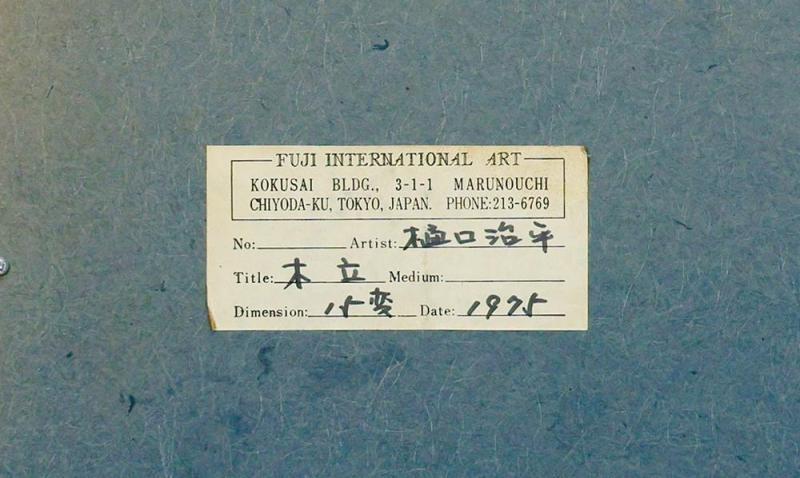 FUJI INTERNATIONAL ART
KOKUSAI BLDG., 3-1-1 MARUNOUCHI
CHIYODA-KU, TOKYO, JAPAN. PHONE:213-6769
No: Artist: 樋口治平
Title: 木立 Medium:
Dimension: 15変 Date: 1975